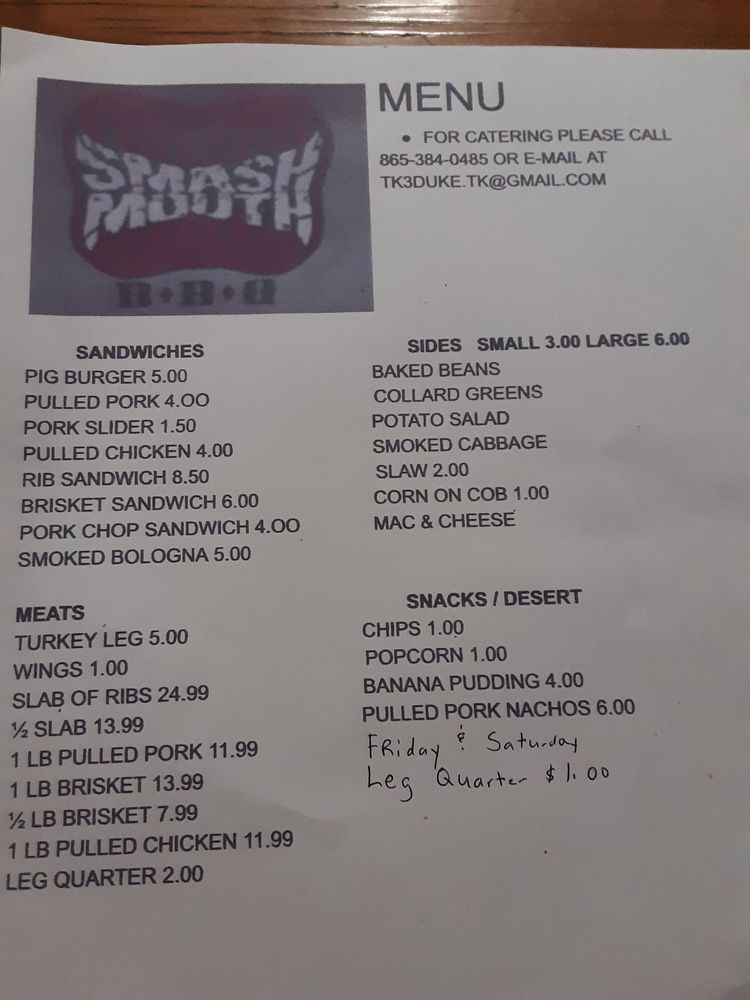 SMASH
MOUTH
B•B•Q
MENU
• FOR CATERING PLEASE CALL
865-384-0485 OR E-MAIL AT
TK3DUKE.TK@GMAIL.COM
SANDWICHES
PIG BURGER 5.00
PULLED PORK 4.OO
PORK SLIDER 1.50
PULLED CHICKEN 4.00
RIB SANDWICH 8.50
BRISKET SANDWICH 6.00
PORK CHOP SANDWICH 4.OO
SMOKED BOLOGNA 5.00
MEATS
TURKEY LEG 5.00
WINGS 1.00
SLAB OF RIBS 24.99
½ SLAB 13.99
1 LB PULLED PORK 11.99
1 LB BRISKET 13.99
½ LB BRISKET 7.99
1 LB PULLED CHICKEN 11.99
LEG QUARTER 2.00
SIDES SMALL 3.00 LARGE 6.00
BAKED BEANS
COLLARD GREENS
POTATO SALAD
SMOKED CABBAGE
SLAW 2.00
CORN ON COB 1.00
MAC & CHEESE
SNACKS / DESERT
CHIPS 1.00
POPCORN 1.00
BANANA PUDDING 4.00
PULLED PORK NACHOS 6.00
FRiday & Saturday
Leg Quarter $1.00